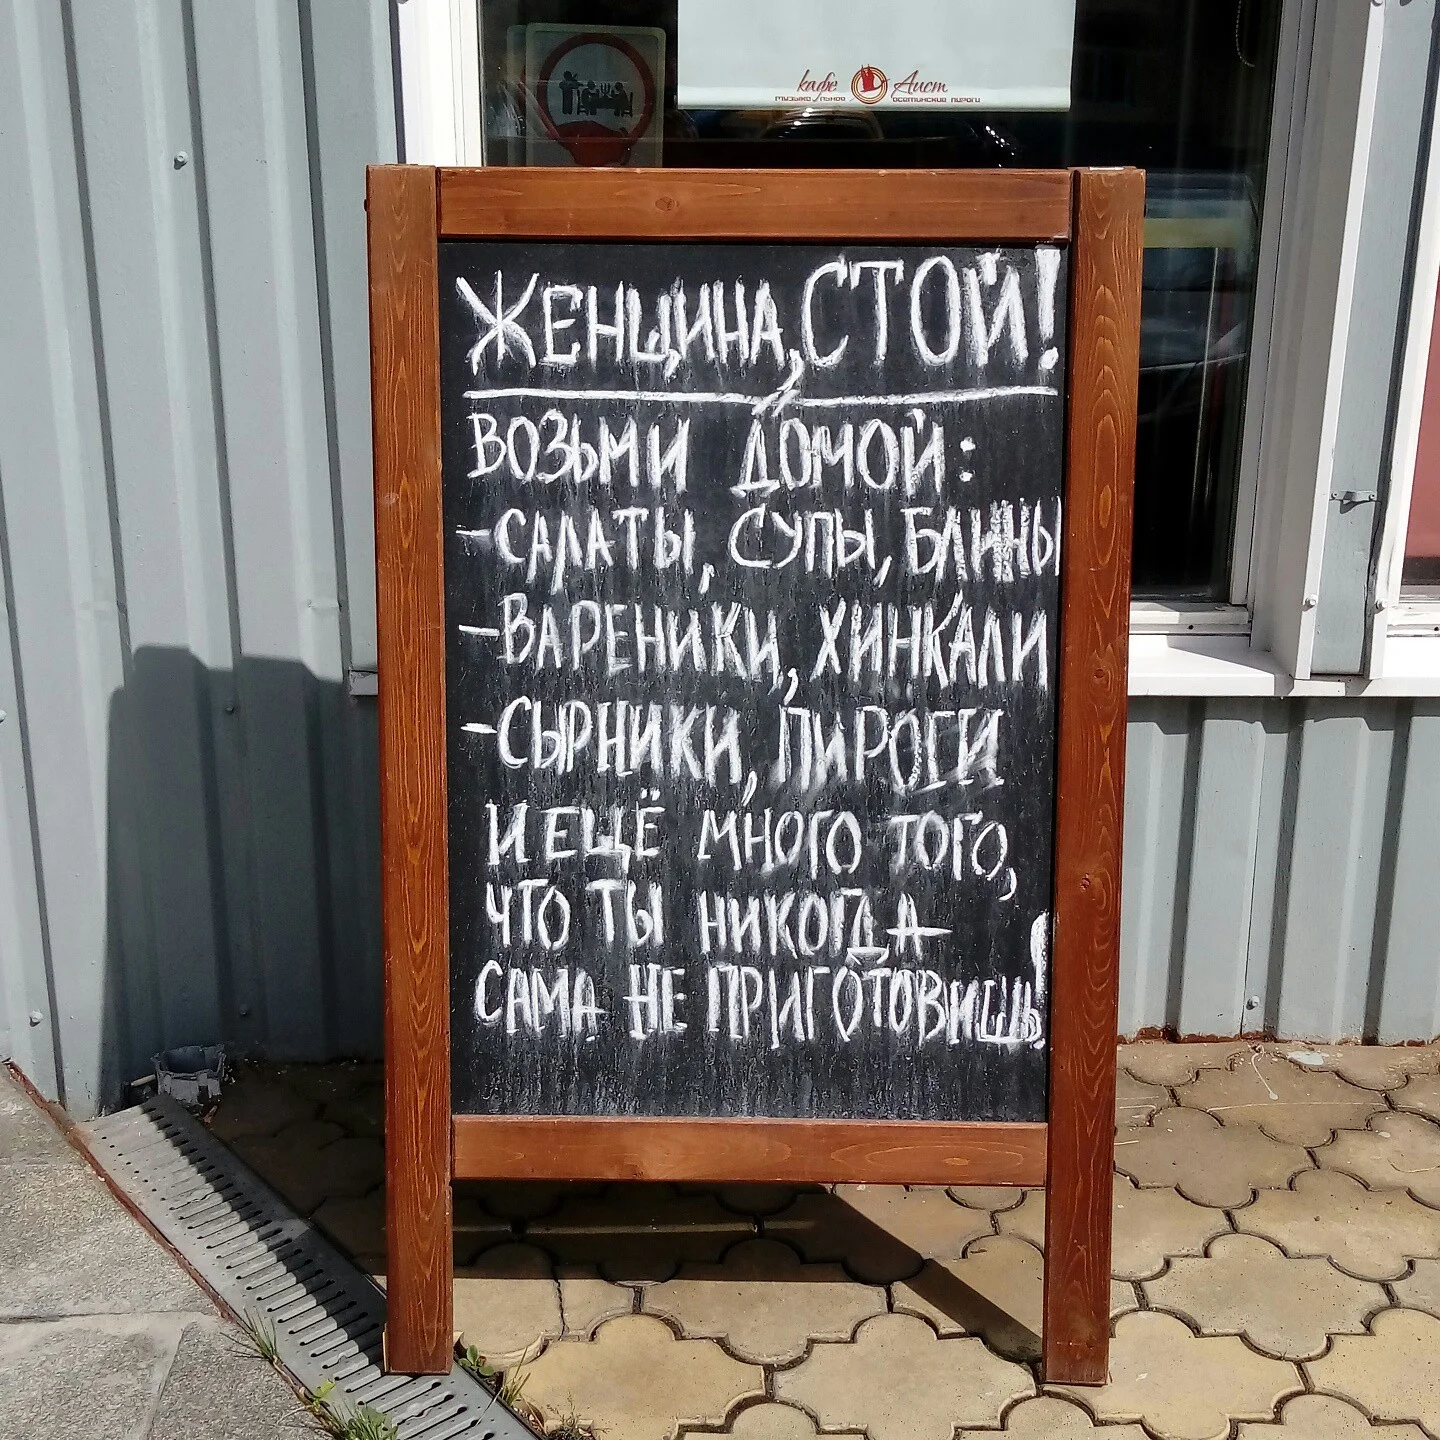 кафе Аист
осетинские пироги
ЖЕНЩИНА, СТОЙ!
ВОЗЬМИ ДОМОЙ:
-САЛАТЫ, СУПЫ, БЛИНЫ
-ВАРЕНИКИ, ХИНКАЛИ
-СЫРНИКИ, ПИРОГИ
И ЕЩЁ МНОГО ТОГО,
ЧТО ТЫ НИКОГДА
САМА НЕ ПРИГОТОВИШЬ!